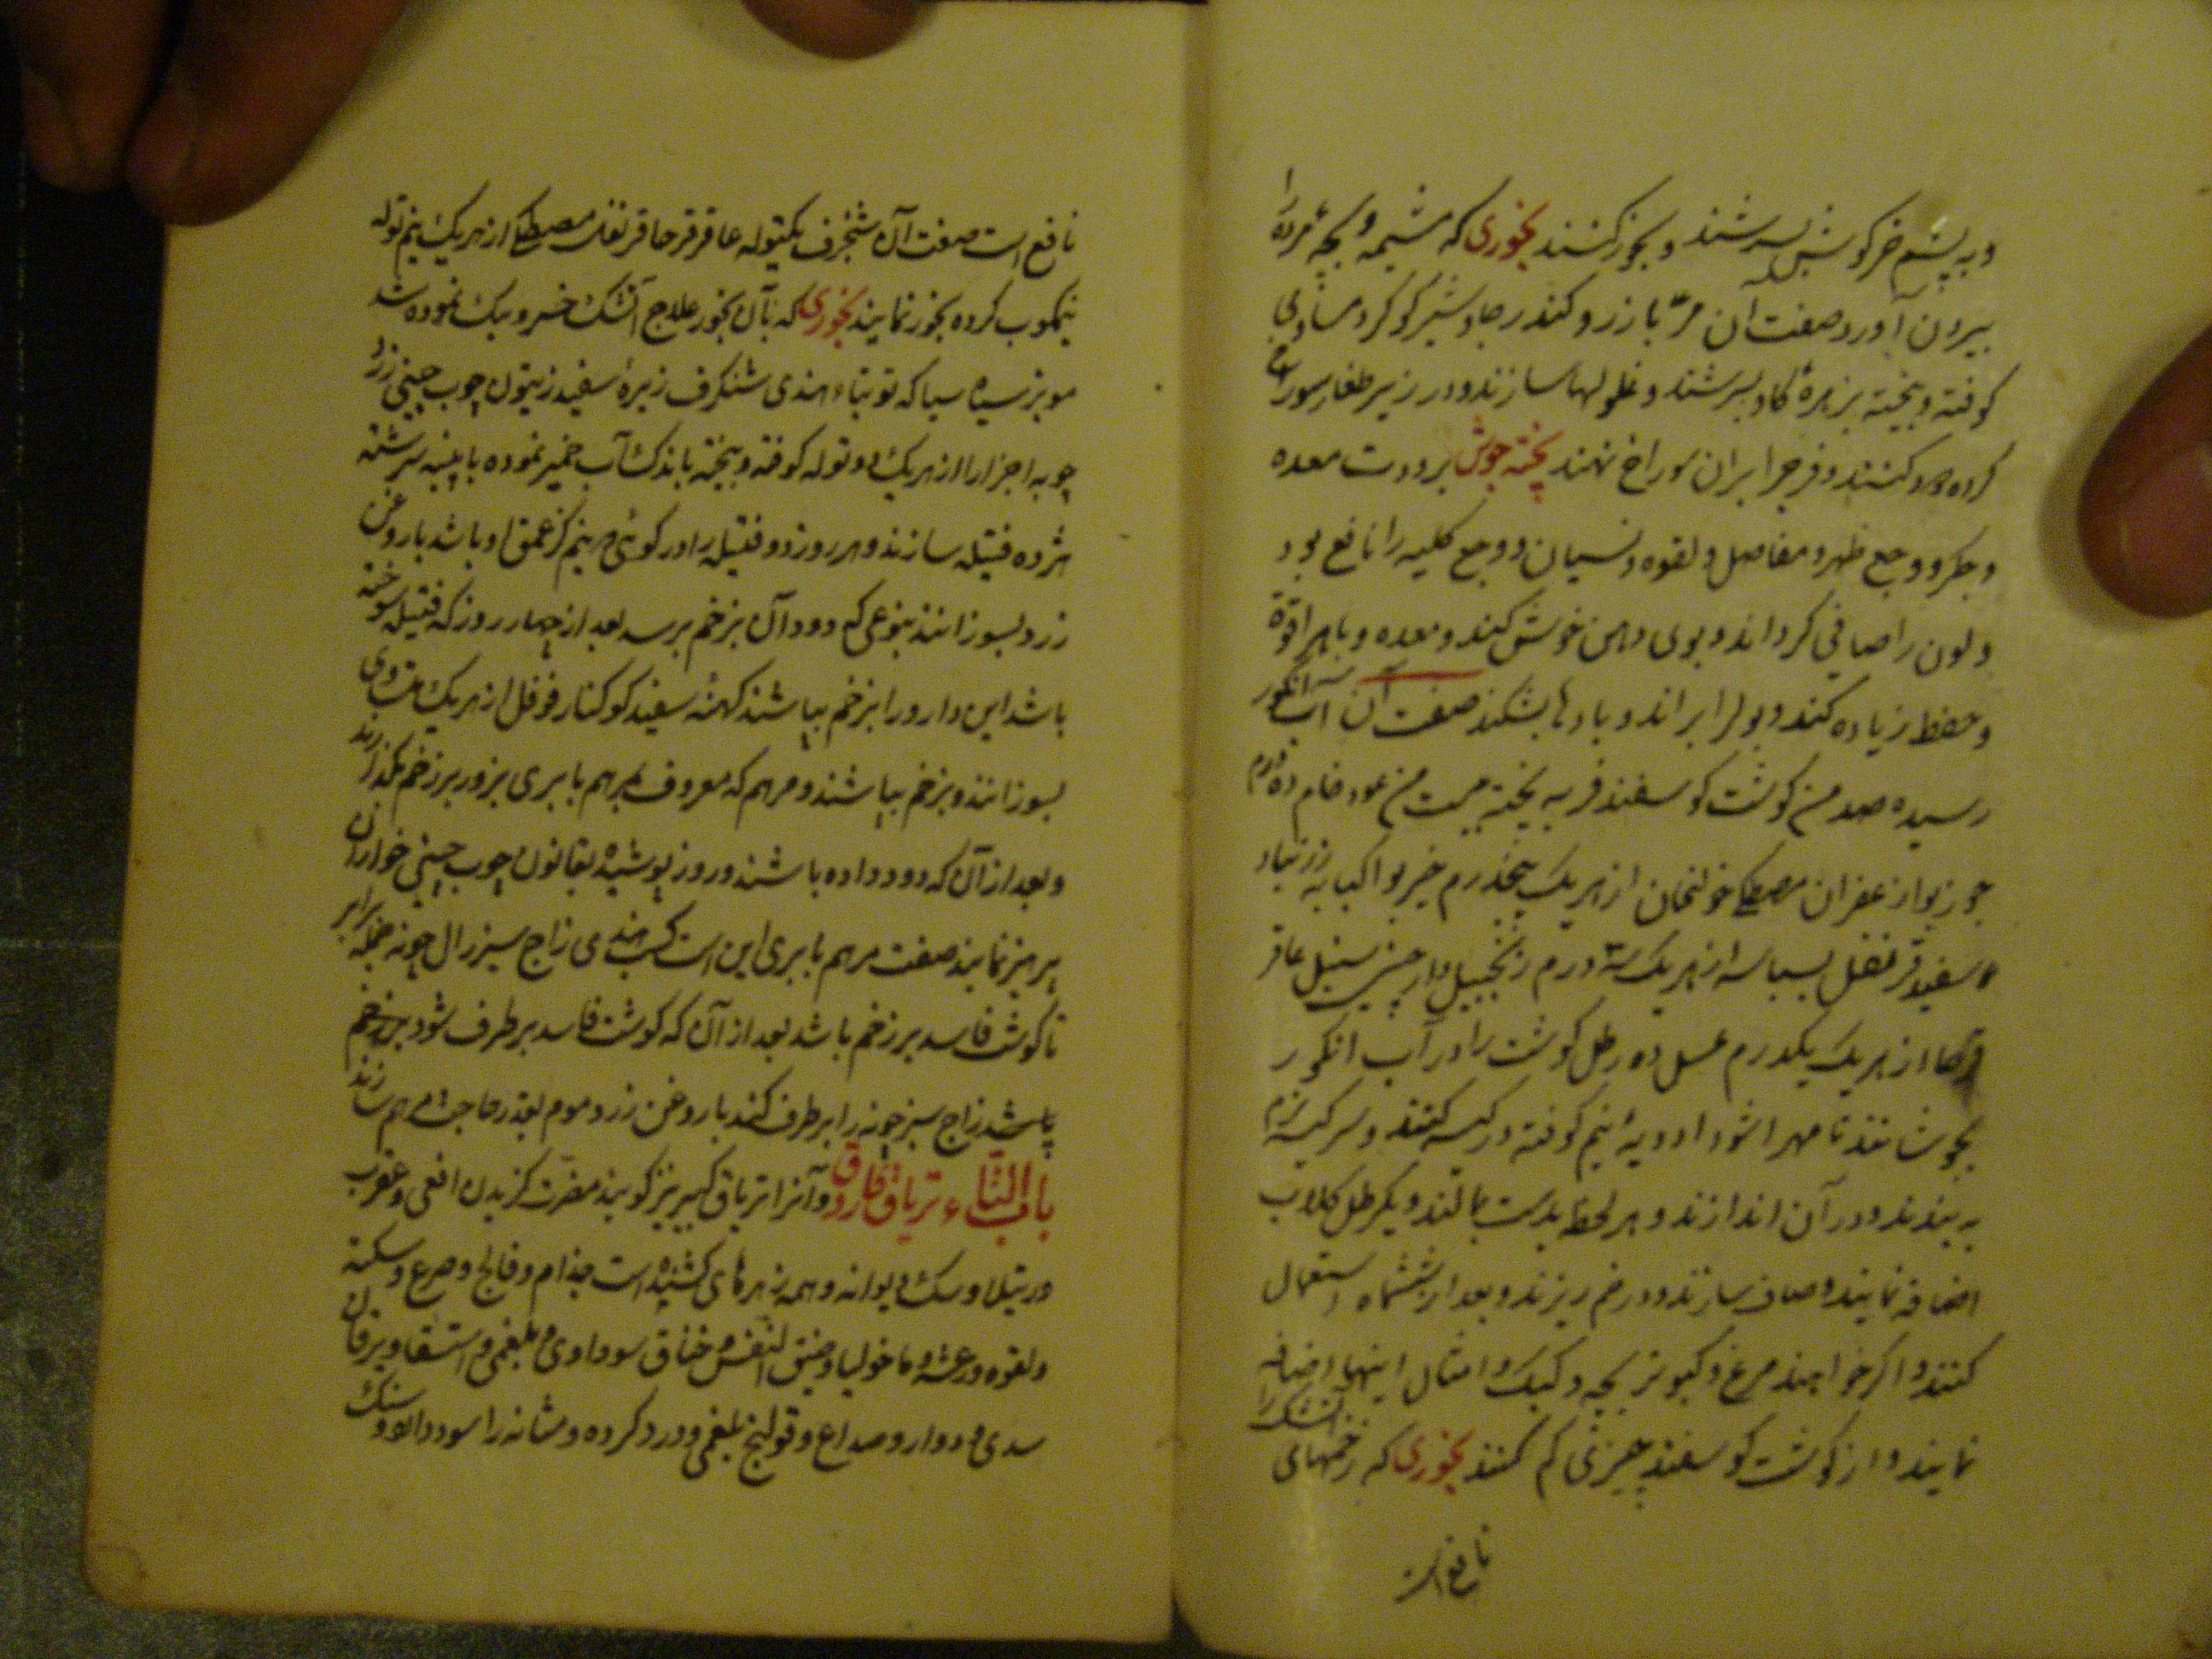 و به پشم خرگوش بسرشند و بخور کنند بخوری که مشیمه و بچه مرده را
بیرون آورد صفت آن مر بارزد کندر جاوشیر گوگرد مساوی
کوفته و بیخته بزهرهٔ گاو بسرشند و غلولها سازند و در زیر طغار سوراخ
کرده دود کنند و فرج را بران سوراخ نهند پخته جوش برودت معده
و جگر و وجع ظهر و مفاصل و لقوه و نسیان و وجع کلیه را نافع بود
و لون را صافی گرداند و بوی دهن خوش کند و معده و باه را قوة
و حفظ زیاده کند و بول را براند و بادها بشکند صفت آن آب انگور
رسیده صد من گوشت گوسفند فربه پخته بیست من عود خام ده درم
جوز بوا زعفران مصطکی خولنجان از هر یک پنجدرم خیر بوا کبابه زرنباد
سفید قرنفل بسباسه از هر یک سه درم زنجبیل دارچینی سنبل عاقر
قرحا از هر یک یکدرم عسل ده رطل گوشت را در آب انگور
بجوشانند تا مهرا شود ادویه نیم کوفته در کیسه کنند و سر کیسه نرم
به بندند و در آن اندازند و هر لحظه بدست بمالند و یکرطل گلاب
اضافه نمایند و صاف سازند و در خم ریزند و بعد از ششماه استعمال
کنند و اگر خواهند مرغ و کبوتر بچه و کبک و امثال اینها اضافه
نمایند و از گوشت گوسفند چیزی کم کنند بخوری که زخمهای آتشک را
نافع است
نافع است صفت آن شنجرف یکتوله عاقرقرحا قرنفل مصطکی از هر یک نیم توله
نیمکوب کرده بخور نمایند بخوری که بآن بخور علاج آتشک خسرو بیک نموده شد
مویز سیاه سیاکه توتیاء هندی شنگرف زیرهٔ سفید زیتون چوب چینی زرد
چوبه اجزا را از هر یک دو توله کوفته و بیخته باندک آب خمیر نموده با پنبه سرشته
هژده فتیله سازند و هر روز دو فتیله را در گوی که نیم گز عمق او باشد با روغن
زرد بسوزانند بنوعی که دود آن بزخم برسد بعد از چهار روز که فتیله سوخته
باشد این دارو را بزخم بپاشند کهنه سفید کوکنار فوفل از هر یک متساوی
بسوزانند و بزخم بپاشند و مرهم که معروف بمرهم بابری بزور بر زخم بگذارند
و بعد از آن که دود داده باشند در روز پوشیده بقانون چوب چینی خواران
پرهیز نمایند صفت مرهم بابری این است که هندی زاج سبز رال چونه همه برابر
تا گوشت فاسد بر زخم باشد بعد از آن که گوشت فاسد بر طرف شود بزخم
پاشد زاج سبز چونه را بر طرف کند با روغن زرد و موم بقدر حاجت مرهم سازند
باب التاء تریاق فاروق و آنرا تریاق کبیر نیز گویند مضرت گزیدن افعی و عقرب
و رتیلا و سگ دیوانه و همه زهرهای کشنده است جذام و فالج و صرع و سکته
و لقوه و رعشه و ماخولیا و ضیق النفس و خناق سوداوی و بلغمی و استسقا و یرقان
سدی و دوار و صداع و قولنج بلغمی و درد گرده و مثانه را سود دارد و سنگ